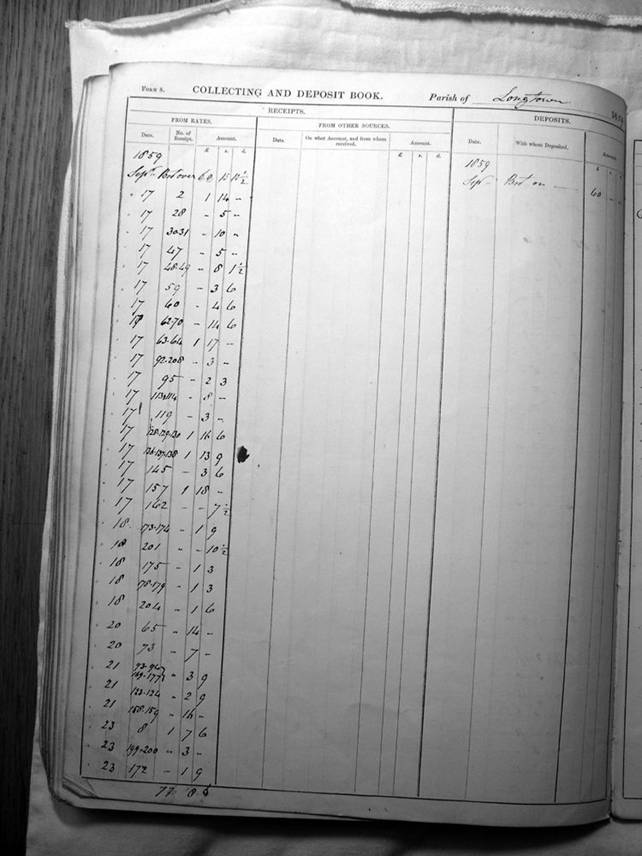 FORM 8. COLLECTING AND DEPOSIT BOOK. Parish of Longtown
RECEIPTS. DEPOSITS.
FROM RATES. FROM OTHER SOURCES.
Date. No. of Receipt. Amount. Date. On what Account, and from whom received. Amount. Date. With whom Deposited. Amount
£ s. d. £ s. d.
1859 1859
Sept Brt over 60 15 10½ Sept Brt on 60 - -
17 2 1 14 -
17 28 - 5 -
17 30 31 - 10 -
17 47 - 5 -
17 48.49 - 8 1½
17 59 - 3 6
17 60 - 4 6
17 62 70 - 14 6
17 63.64 1 17 -
17 92.208 - 3 -
17 95 - 2 3
17 113 114 - 8 -
17 119 - 3 -
17 128.129.130 1 16 6
17 136.137.138 1 13 9
17 145 - 3 6
17 157 1 18 -
17 162 - - 7½
18 173.174 - 1 9
18 201 - - 10½
18 175 - 1 3
18 178.179 - 1 3
18 204 - 1 6
20 65 - 14 -
20 73 - 7 -
21 - 3 9
21 123.124 - 2 9
21 158.159 - 16 -
23 8 1 7 6
23 199.200 - 3 -
23 172 - 1 9
77 8